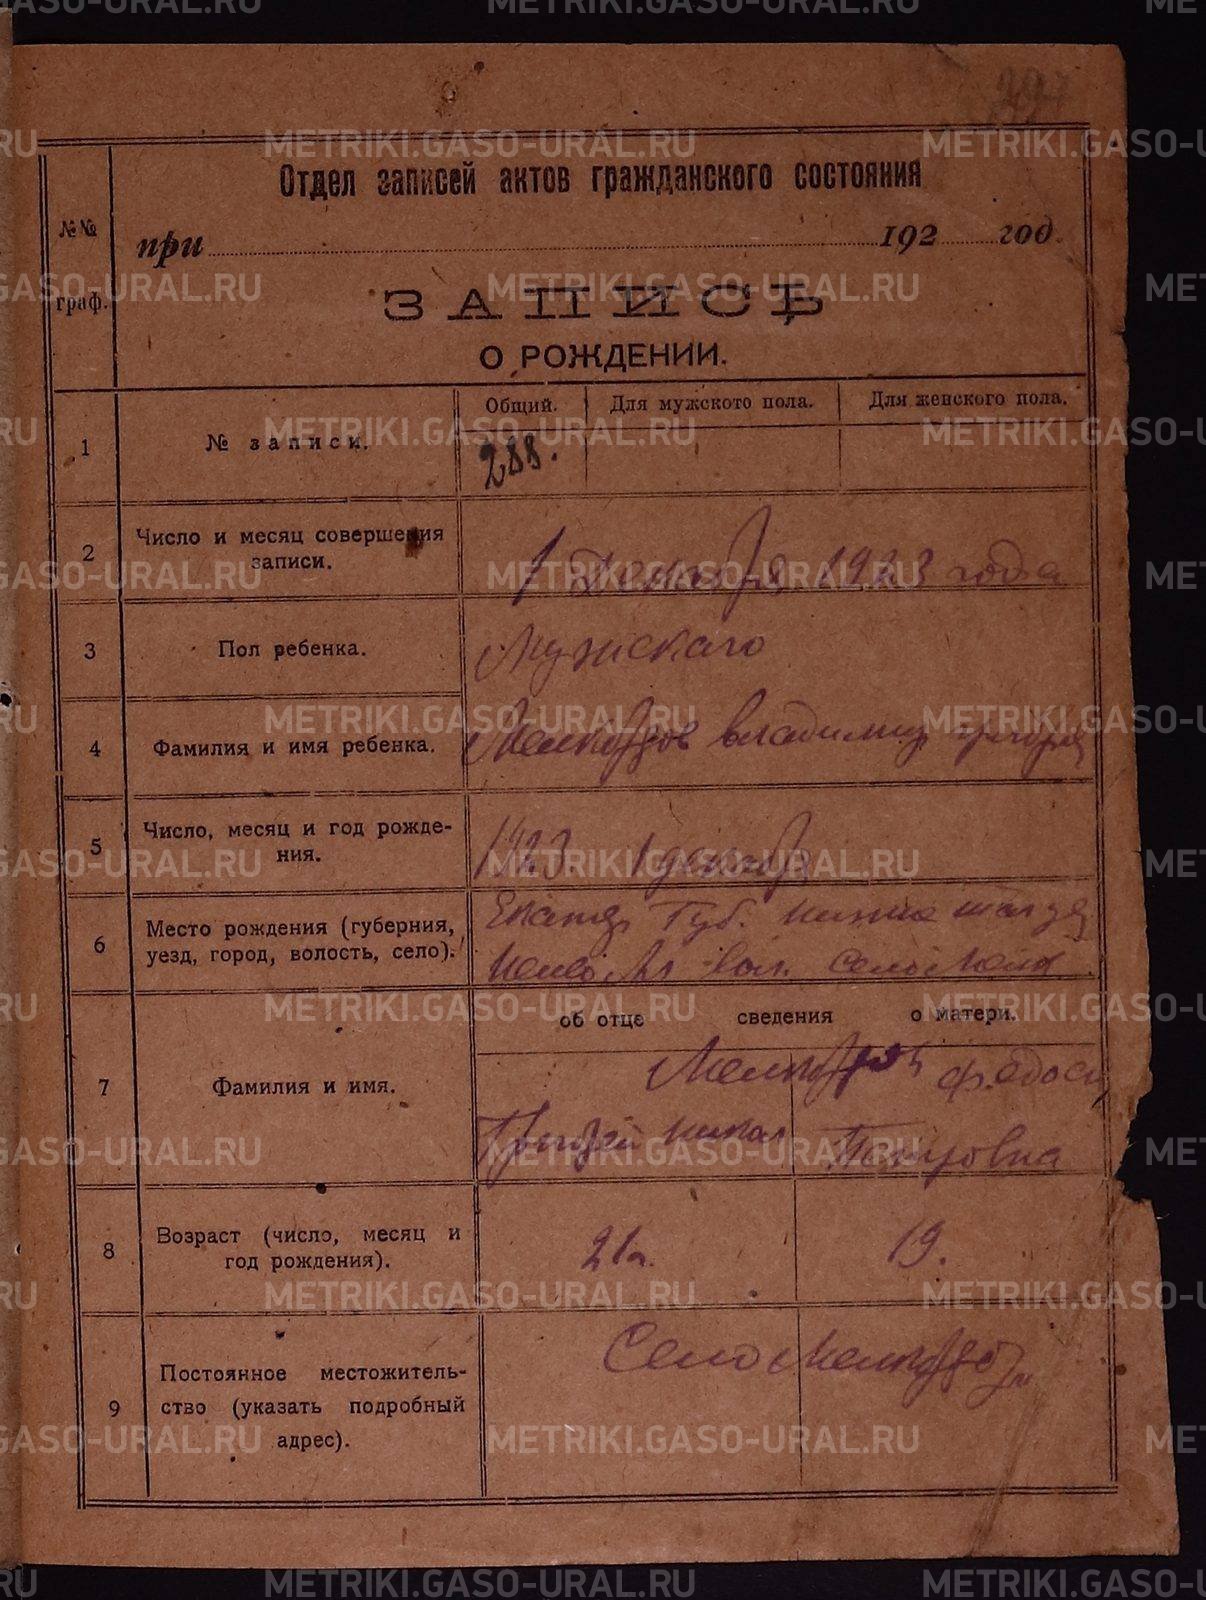 297
Отдел записей актов гражданского состояния
№№ граф.
при 192 год.
ЗАПИСЬ
О РОЖДЕНИИ.
Общий. Для мужского пола. Для женского пола.
1 № записи. 288.
2 Число и месяц совершения
записи.
1 Декабря 1923 года
3 Пол ребенка. Мужскаго
4 Фамилия и имя ребенка. Мелкозеров владимир
5 Число, месяц и год рожде-
ния.
1923. 1 декабря
6 Место рождения (губерния,
уезд, город, волость, село).
Екатер Губ. нижне
вол. село
об отце сведения о матери.
7 Фамилия и имя.
Федоси
Григорей никол Петровна
8 Возраст (число, месяц и
год рождения).
21 г. 19.
9 Постоянное местожитель-
ство (указать подробный
адрес).
Село
METRIKI.GASO-URAL.RU